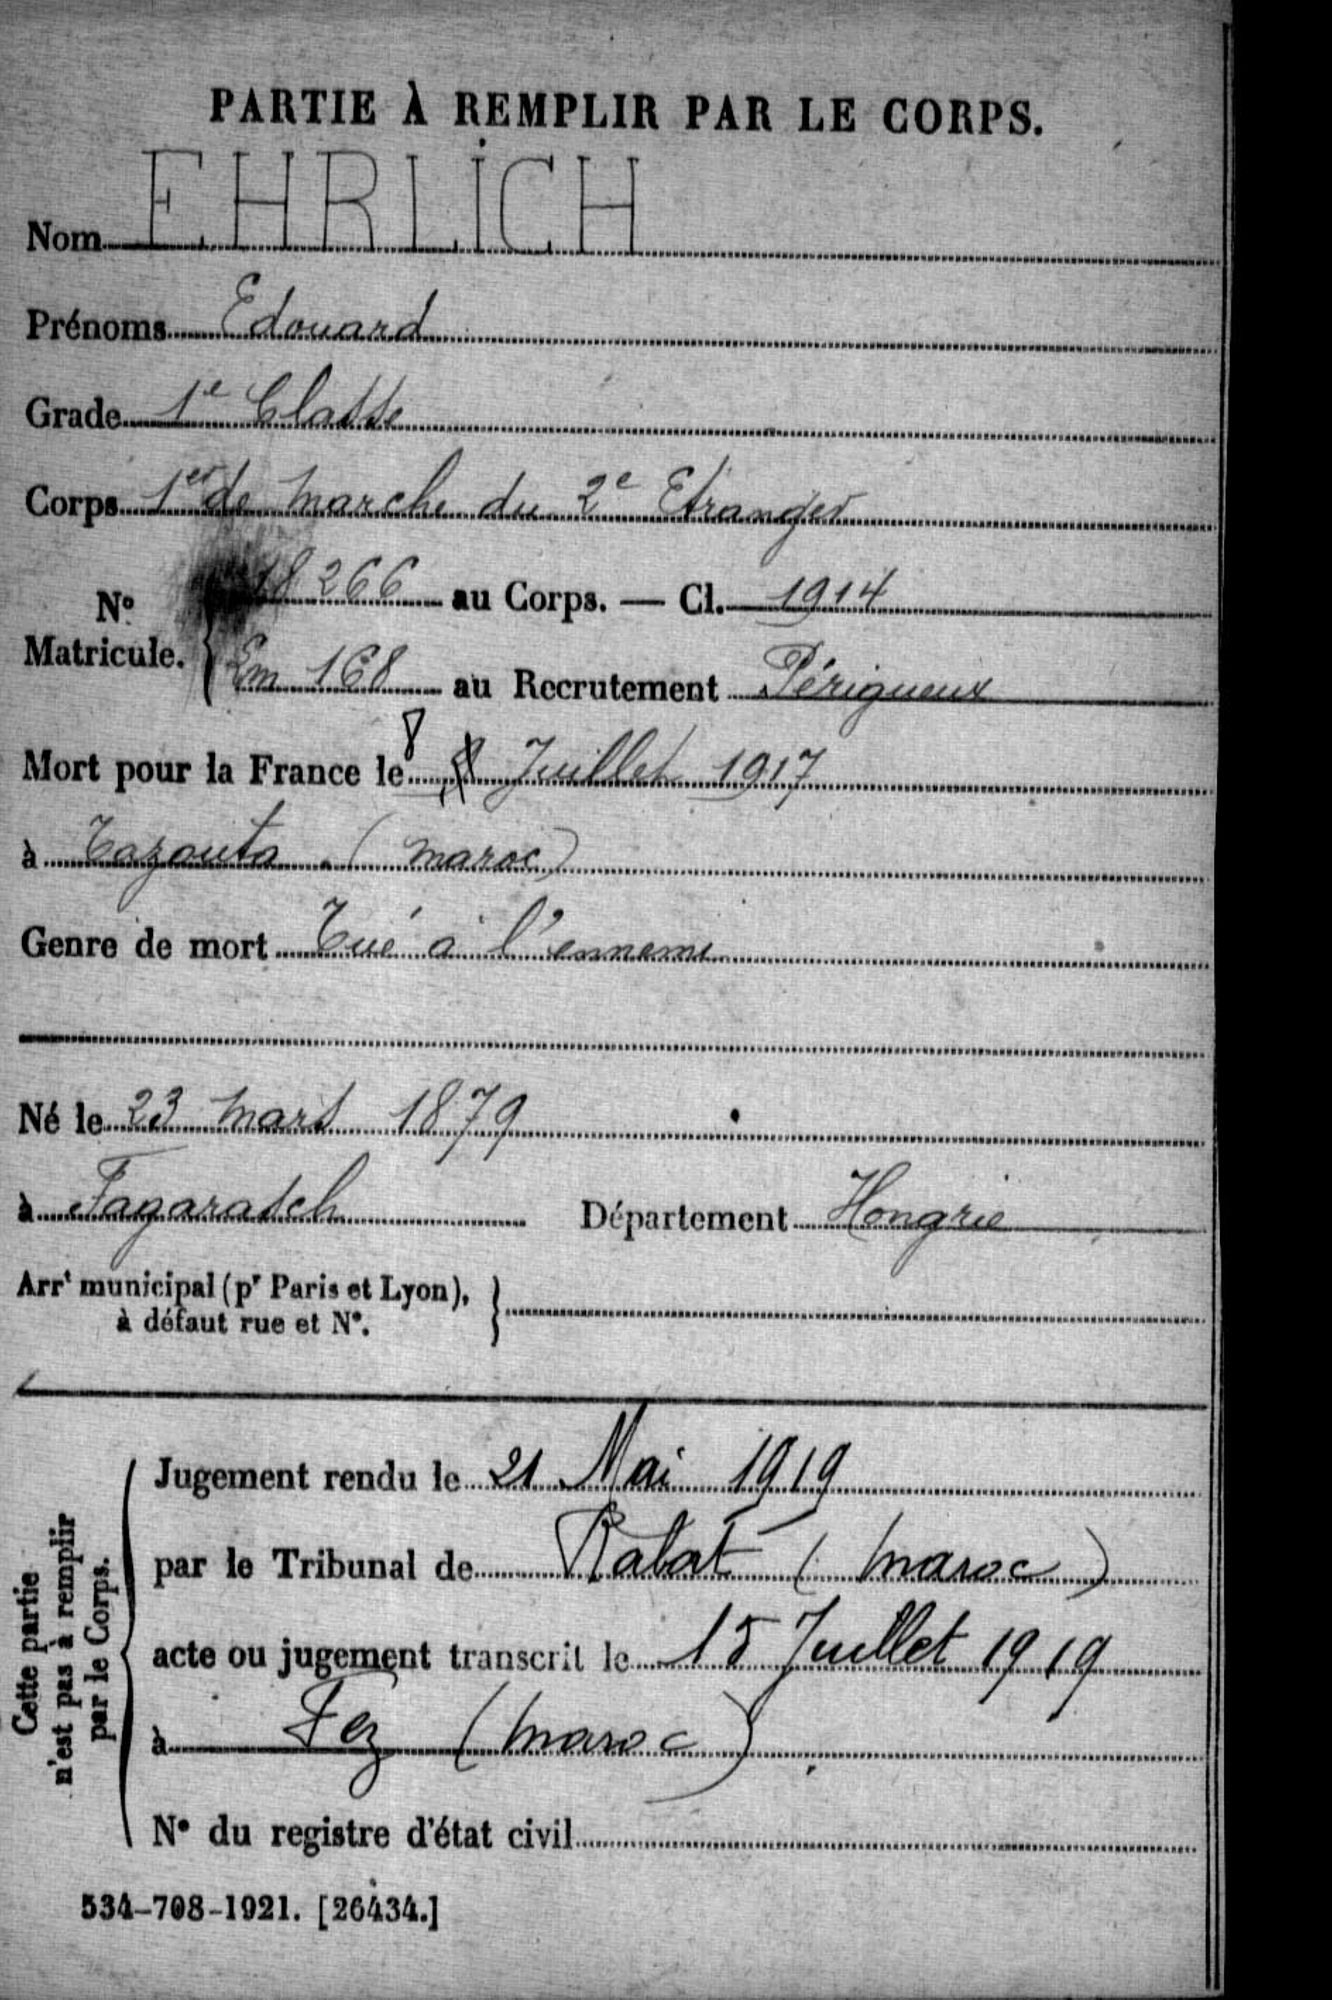 PARTIE À REMPLIR PAR LE CORPS.
Nom EHRLICH
Prénoms Edouard
Grade 1e Classe
Corps 1er de marche du 2e Etranger
No Matricule. 18266 au Corps. — Cl. 1914
Em 168 au Recrutement Périgueux
8
Mort pour la France le 8 Juillet 1917
à Tazouta (maroc)
Genre de mort Tué à l'ennemi
Né le 23 mars 1879
à Fagarasch Département Hongrie
Arrt municipal (pr Paris et Lyon),
à défaut rue et N°.
Cette partie
n'est pas à remplir
par le Corps.
Jugement rendu le 21 Mai 1919
par le Tribunal de Rabat (maroc)
acte ou jugement transcrit le 15 Juillet 1919
à Fez (maroc)
N° du registre d'état civil
534-708-1921. [26434.]